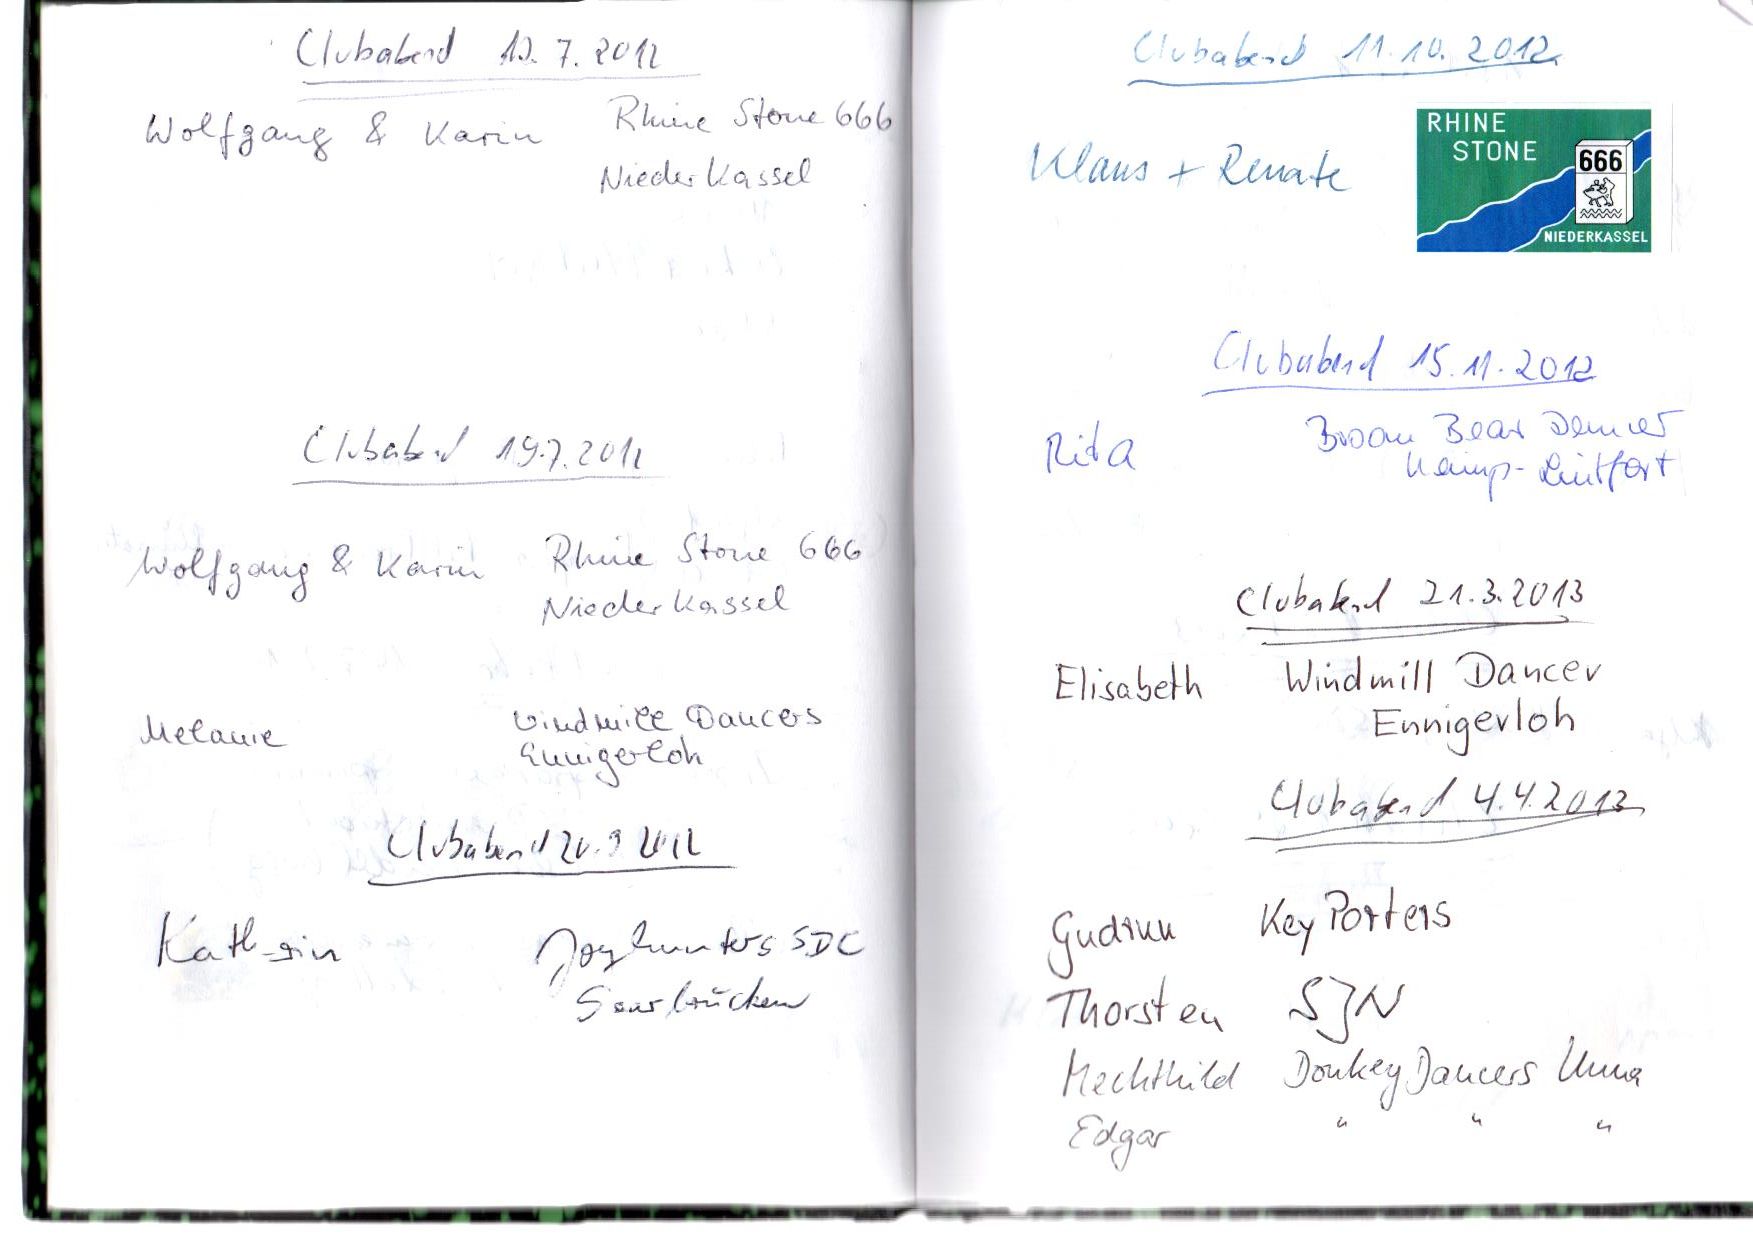 Clubabend 12.7.2012
Wolfgang & Karin Rhine Stone 666
Niederkassel
Clubabend 19.7.2012
Wolfgang & Karin Rhine Stone 666
Niederkassel
Melanie Windmill Dancers
Ennigerloh
Clubabend 20.9.2012
Kathrin Joyhunters SDC
Saarbrücken
Clubabend 11.10.2012
Klaus + Renate
RHINE
STONE
666
NIEDERKASSEL
Clubabend 15.11.2012
Rita Broom Bear Dancer
Kamp-Lintfort
Clubabend 21.3.2013
Elisabeth Windmill Dancer
Ennigerloh
Clubabend 4.4.2013
Gudrun Key Porters
Thorsten SJN
Mechthild Donkey Dancers Unna
Edgar " " "